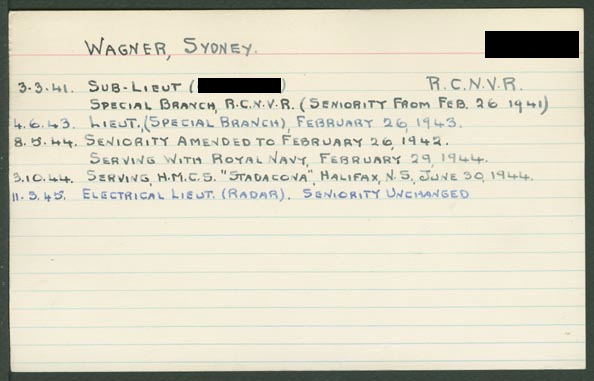 WAGNER, SYDNEY.
3·3·41. SUB-LIEUT ( ) R.C.N.V.R.
SPECIAL BRANCH, R.C.N.V.R. (SENIORITY FROM FEB. 26 1941)
4.6.43. LIEUT.,(SPECIAL BRANCH), FEBRUARY 26, 1943.
8.5.44. SENIORITY AMENDED TO FEBRUARY 26, 1942.
SERVING WITH ROYAL NAVY, FEBRUARY 29, 1944.
3.10.44. SERVING, H.M.C.S. "STADACONA", HALIFAX, N.S, JUNE 30, 1944.
11.5.45. ELECTRICAL LIEUT. (RADAR). SENIORITY UNCHANGED